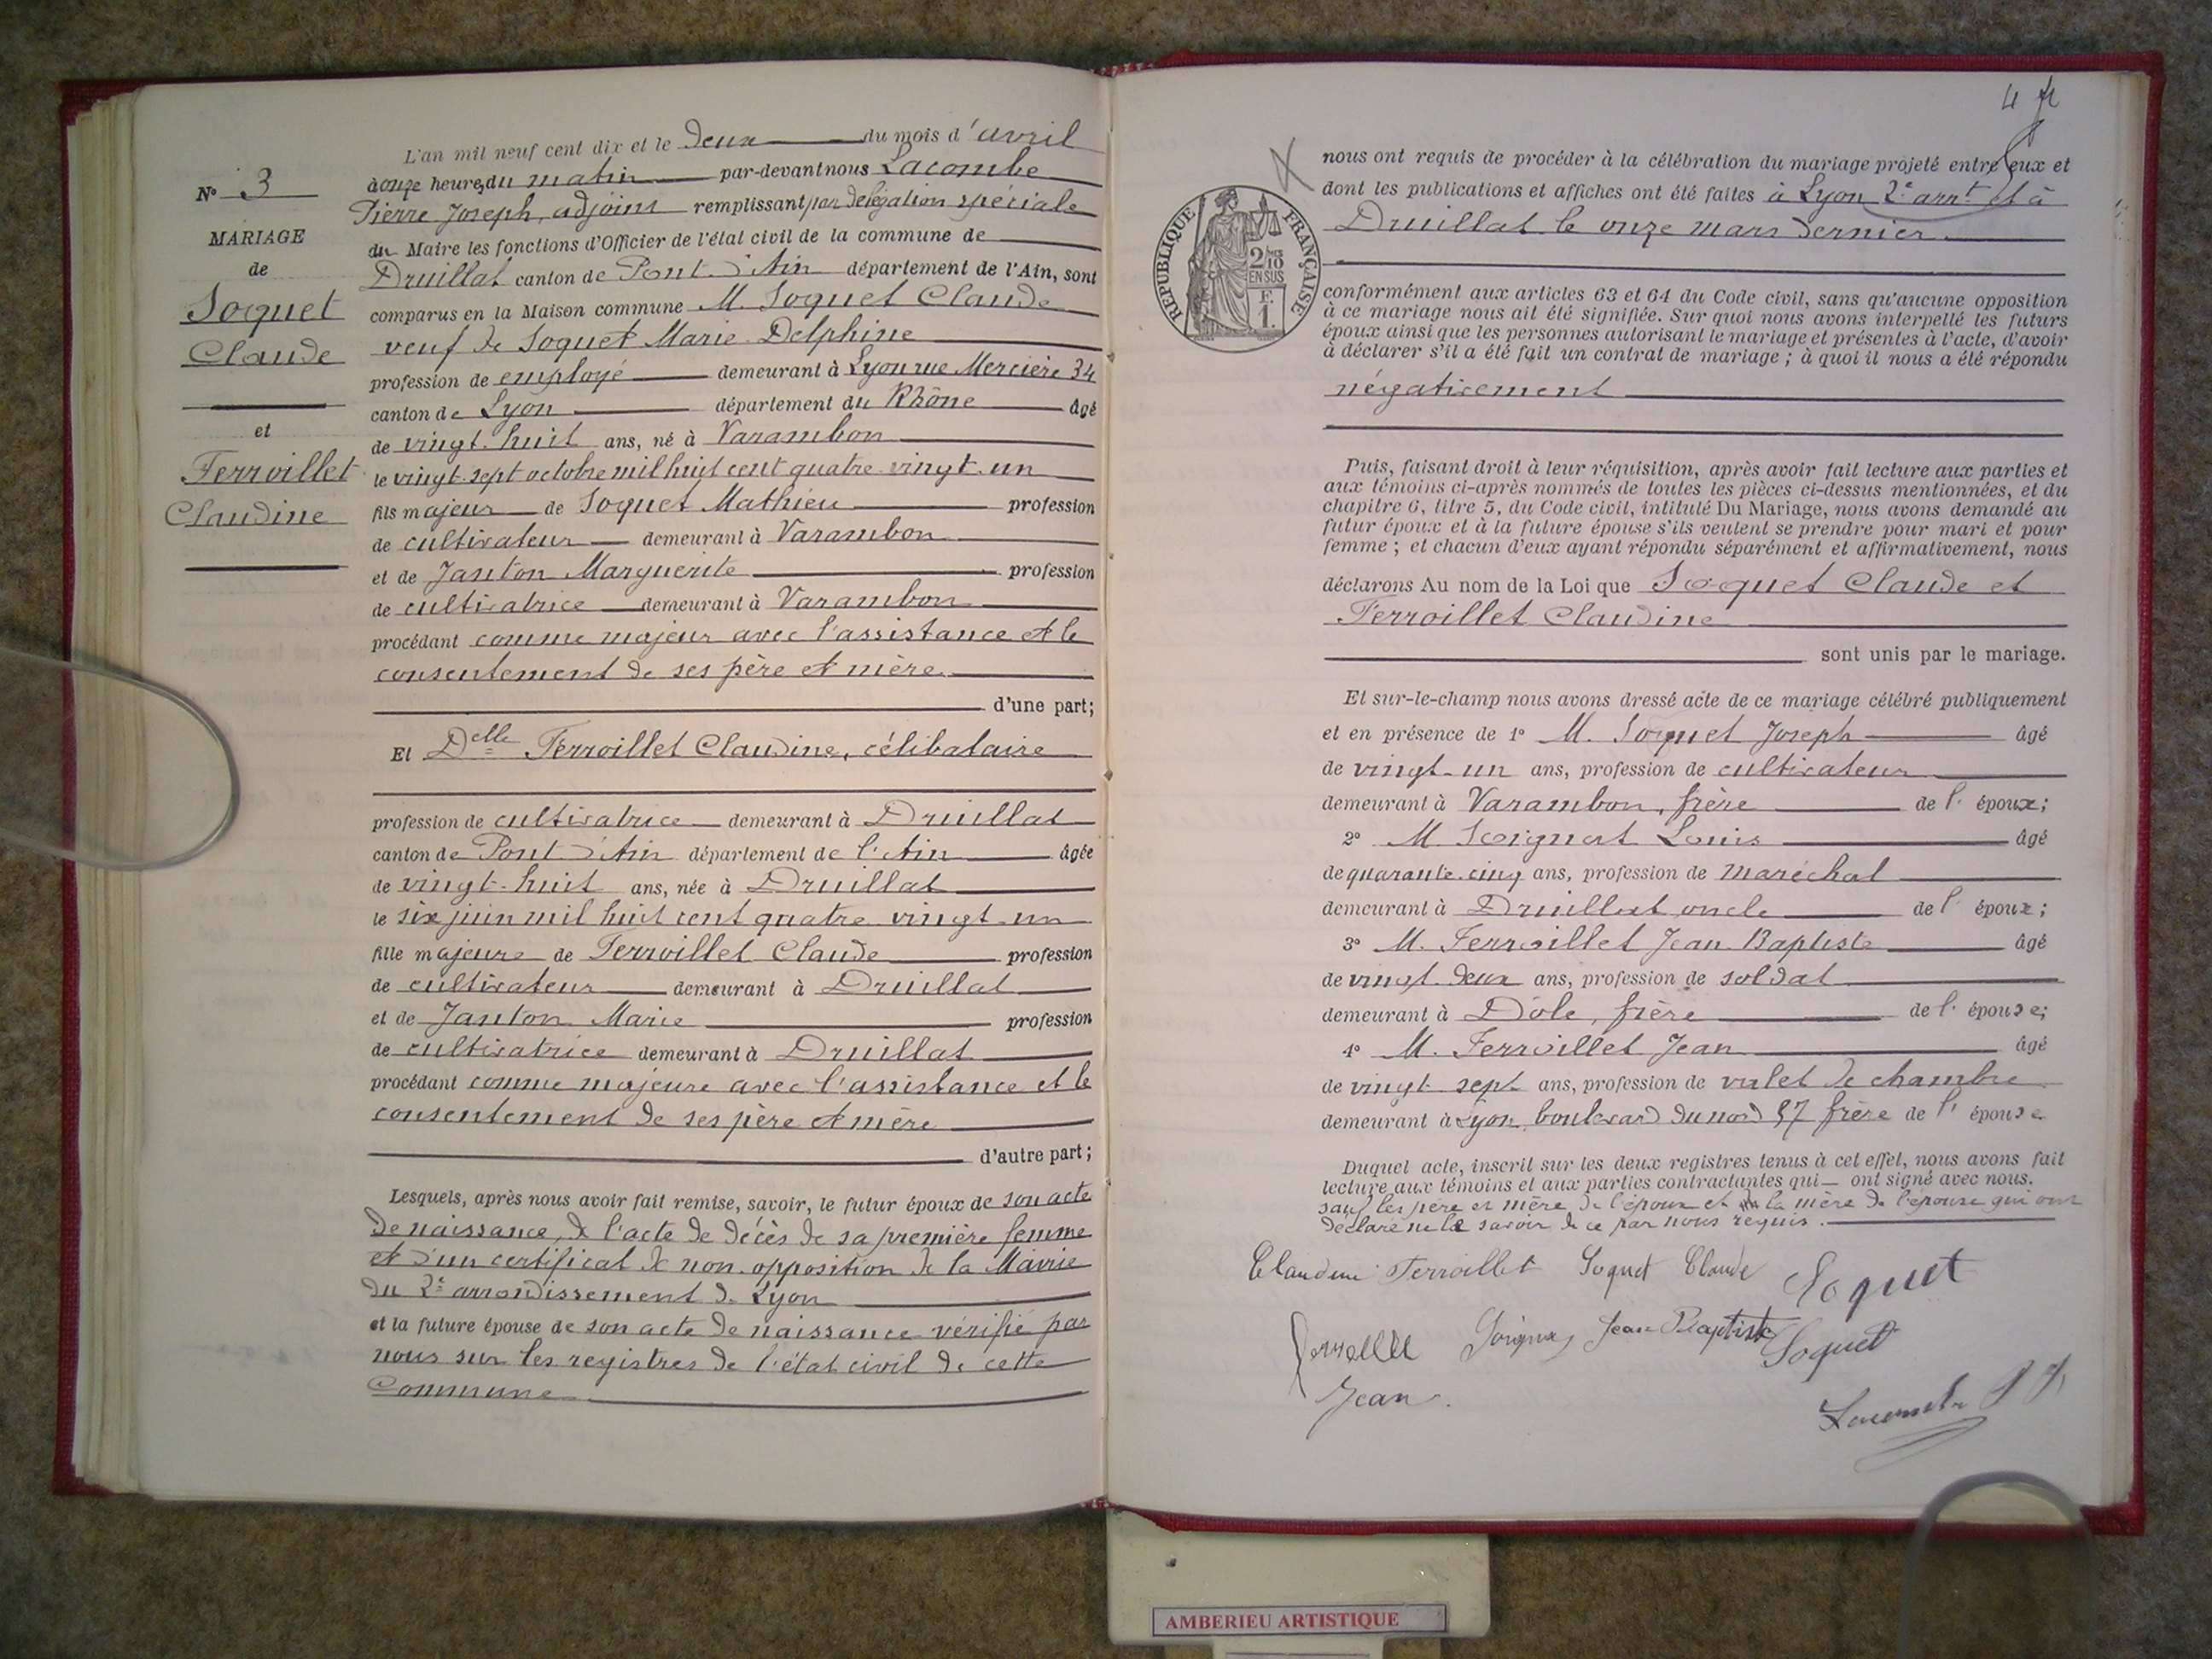 L'an mil neuf cent dix et le deux du mois d'avril
à onze heures du matin par-devant nous Lacombe
Pierre Joseph, adjoint remplissant par délégation spéciale
du Maire les fonctions d'Officier de l'état civil de la commune de
Druillat canton de Pont d'Ain département de l'Ain, sont
comparus en la Maison commune M. Soquet Claude
veuf de Soquet Marie Delphine
profession de employé demeurant à Lyon rue Mercière 34
canton de Lyon département du Rhône âgé
de vingt-huit ans, né à Varambon
le vingt-sept octobre mil huit cent quatre-vingt-un
fils majeur de Soquet Mathieu profession
de cultivateur demeurant à Varambon
et de Janton Marguerite profession
de cultivatrice demeurant à Varambon
procédant comme majeur avec l'assistance et le
consentement de ses père et mère
d'une part;
Et Delle Ferroillet Claudine, célibataire
profession de cultivatrice demeurant à Druillat
canton de Pont d'Ain département de l'Ain âgée
de vingt-huit ans, née à Druillat
le six juin mil huit cent quatre-vingt-un
fille majeure de Ferroillet Claude profession
de cultivateur demeurant à Druillat
et de Janton Marie profession
de cultivatrice demeurant à Druillat
procédant comme majeure avec l'assistance et le
consentement de ses père et mère
d'autre part;
Lesquels, après nous avoir fait remise, savoir, le futur époux de son acte
de naissance, de l'acte de décès de sa première femme
et d'un certificat de non-opposition de la Mairie
du 2e arrondissement de Lyon
et la future épouse de son acte de naissance vérifié par
nous sur les registres de l'état civil de cette
Commune
N° 3
MARIAGE
de
Soquet
Claude
et
Ferroillet
Claudine
4
nous ont requis de procéder à la célébration du mariage projeté entre eux et
dont les publications et affiches ont été faites à Lyon 2e arrt et à
Druillat le onze mars dernier
RÉPUBLIQUE FRANÇAISE
2/10
EN SUS
F.
1.
conformément aux articles 63 et 64 du Code civil, sans qu'aucune opposition
à ce mariage nous ait été signifiée. Sur quoi nous avons interpellé les futurs
époux ainsi que les personnes autorisant le mariage et présentes à l'acte, d'avoir
à déclarer s'il a été fait un contrat de mariage ; à quoi il nous a été répondu
négativement
Puis, faisant droit à leur réquisition, après avoir fait lecture aux parties et
aux témoins ci-après nommés de toutes les pièces ci-dessus mentionnées, et du
chapitre 6, titre 5, du Code civil, intitulé Du Mariage, nous avons demandé au
futur époux et à la future épouse s'ils veulent se prendre pour mari et pour
femme ; et chacun d'eux ayant répondu séparément et affirmativement, nous
déclarons Au nom de la Loi que Soquet Claude et
Ferroillet Claudine
sont unis par le mariage.
Et sur-le-champ nous avons dressé acte de ce mariage célébré publiquement
et en présence de 1° M. Soquet Joseph âgé
de vingt-un ans, profession de cultivateur
demeurant à Varambon, frère de l' époux;
2° M. Soignat Louis âgé
de quarante-cinq ans, profession de maréchal
demeurant à Druillat oncle de l' époux;
3° M. Ferroillet Jean Baptiste âgé
de vingt-deux ans, profession de soldat
demeurant à Dôle, frère de l' épouse;
4° M. Ferroillet Jean âgé
de vingt sept ans, profession de valet de chambre
demeurant à Lyon, boulevard du nord 57 frère de l' épouse
Duquel acte, inscrit sur les deux registres tenus à cet effet, nous avons fait
lecture aux témoins et aux parties contractantes qui ont signé avec nous.
sauf les père et mère de l'époux et la mère de l'épouse qui ont
déclaré ne le savoir de ce par nous requis.
Claudine Ferroillet Soquet Claude Soquet
Jean Baptiste
Soquet
Jean
AMBERIEU ARTISTIQUE